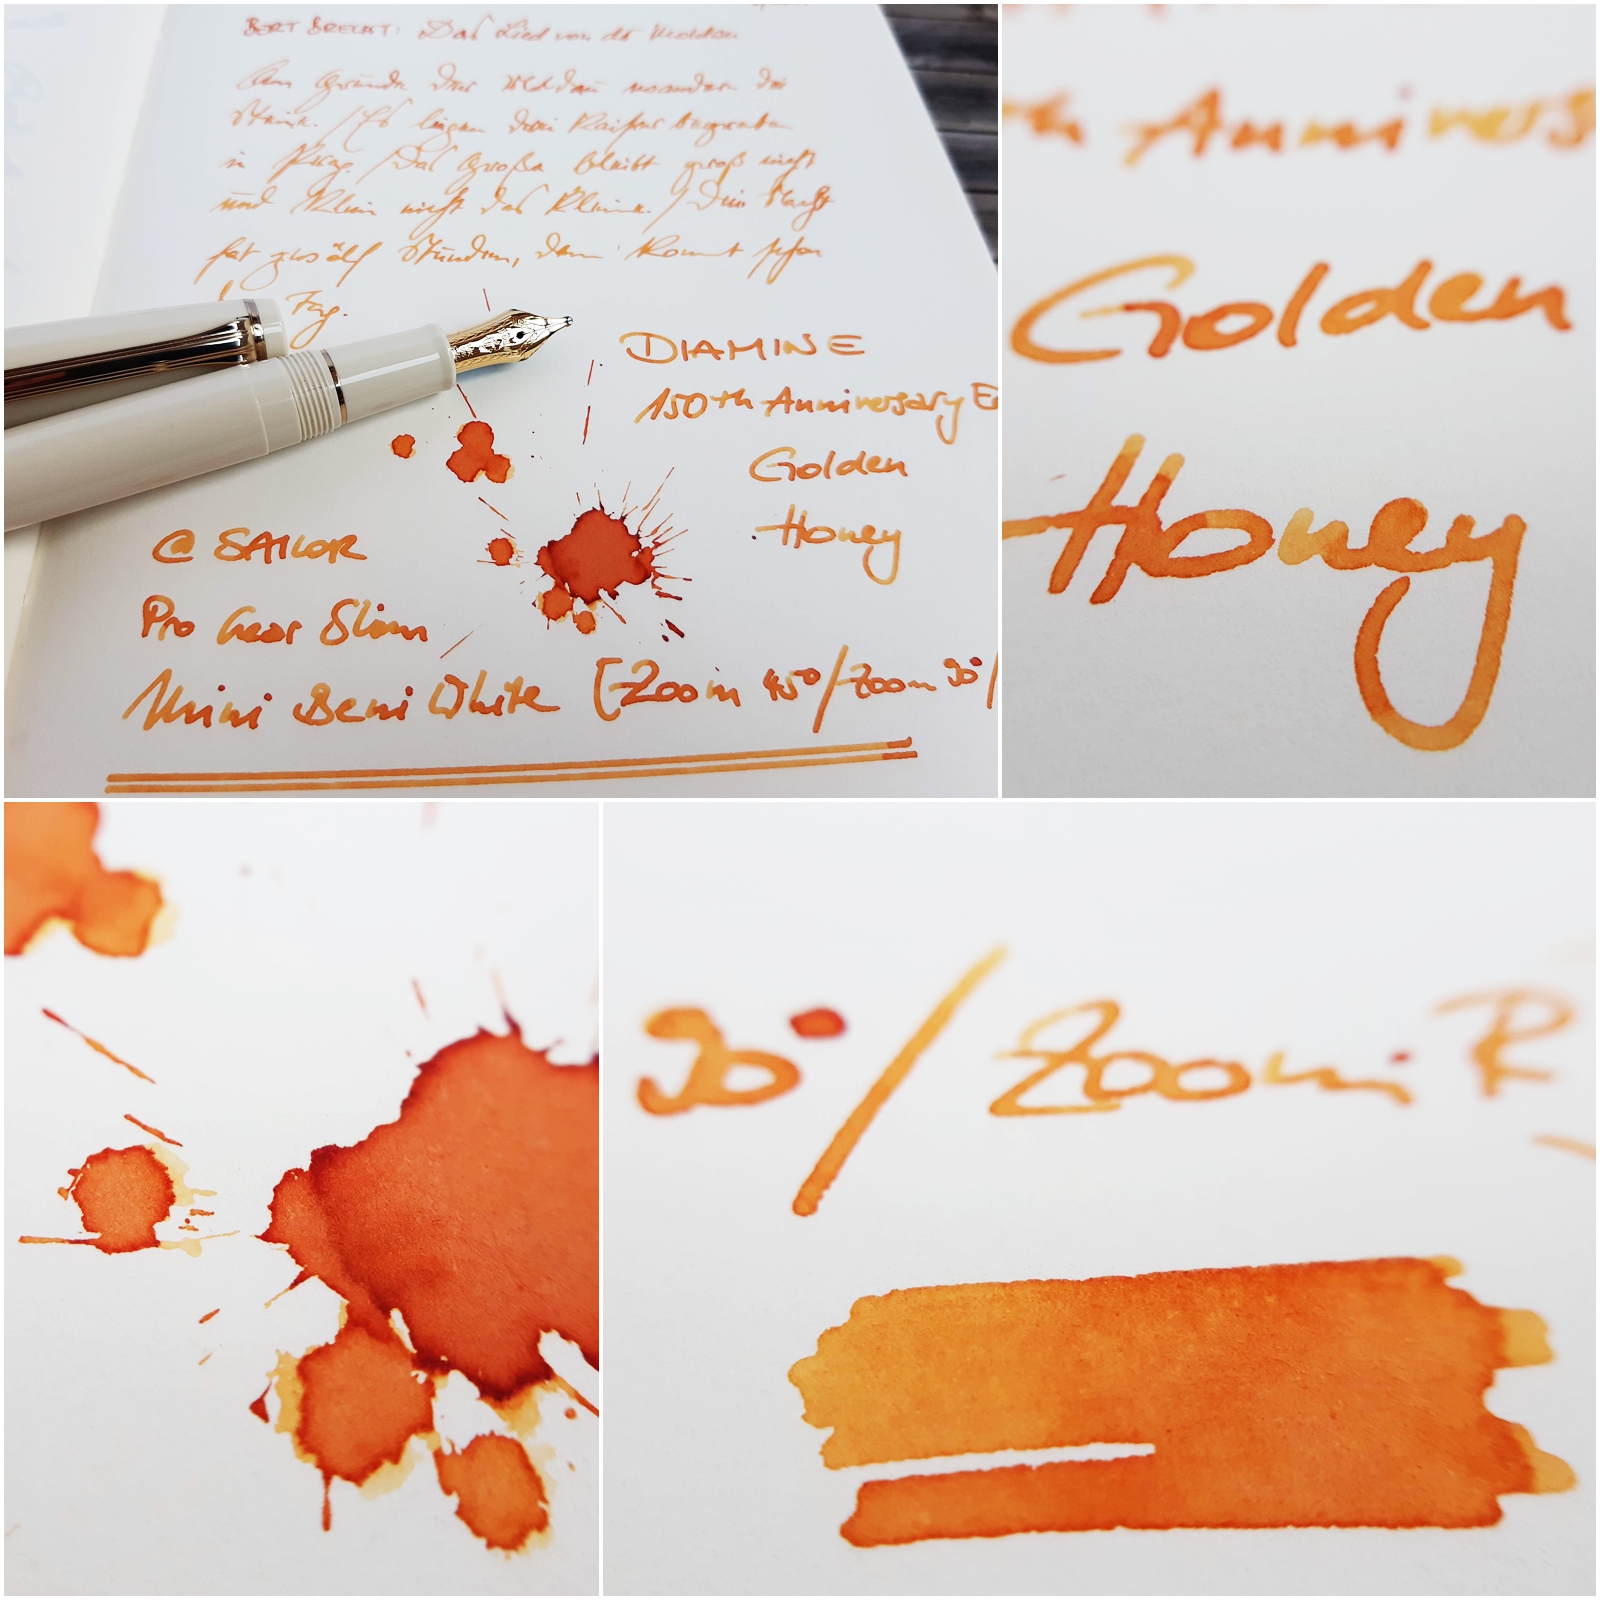 BERT BRECHT: Das Lied von der Moldau
Am Grunde der Moldau wandern die
Steine. / Es liegen drei Kaiser begraben
in Prag. / Das Große bleibt groß nicht
und klein nicht das Kleine. / Die Nacht
hat zwölf Stunden, dann kommt schon
Tag.
DIAMINE
150th Anniversary
Golden
Honey
@ SAILOR
Pro Gear Slim
Mini Beni White [Zoom 45°/Zoom 90°/
th Annivers
Golden
Honey
90°/Zoom R